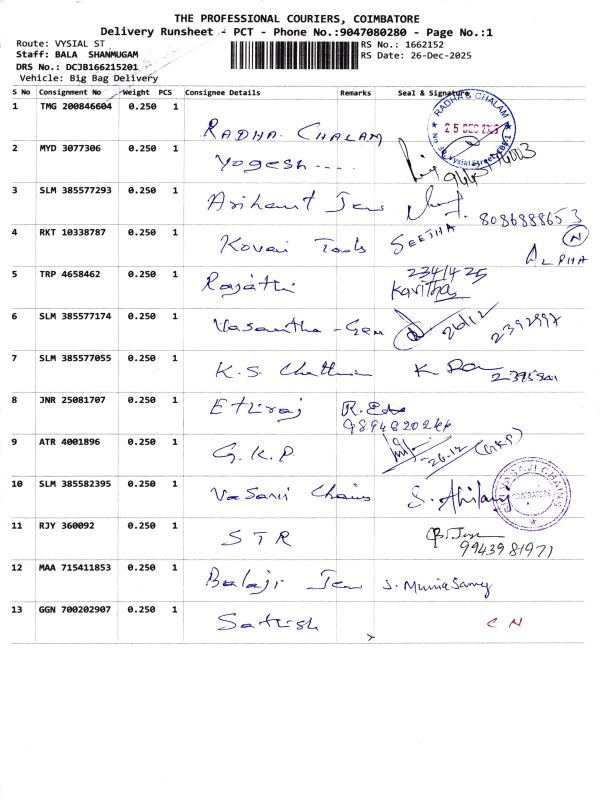 THE PROFESSIONAL COURIERS, COIMBATORE
Delivery Runsheet - PCT - Phone No.:9047080280 - Page No.:1
Route: VYSIAL ST
RS No.: 1662152
Staff: BALA SHANMUGAM
RS Date: 26-Dec-2025
DRS No.: DCJB166215201
Vehicle: Big Bag Delivery
S No Consignment No Weight PCS Consignee Details Remarks Seal & Signature
1 TMG 200846604 0.250 1 RADHA CHALAM
RADHA & CHALAM
25 DEC
Vysial Street
2 MYD 3077306 0.250 1 Yogesh ----
3 SLM 385577293 0.250 1 Arihant Jew 8086888653
4 RKT 10338787 0.250 1 Kovai Tools SEETHA N
ALPHA
5 TRP 4658462 0.250 1 Rajathi Kavitha
6 SLM 385577174 0.250 1 Vasantha - Gem 26/12 2392997
7 SLM 385577055 0.250 1 K.S. K.
8 JNR 25081707 0.250 1 Ethiraj R.
9894820266
9 ATR 4001896 0.250 1 G.K.P 26.12 (GKP)
10 SLM 385582395 0.250 1 Vasavi Chains S. Ahilan
SRI VASAVI CHAINS
COIMBATORE
11 RJY 360092 0.250 1 STR
9943981971
12 MAA 715411853 0.250 1 Balaji Jew S. Muniasamy
13 GGN 700202907 0.250 1 Sathish C N